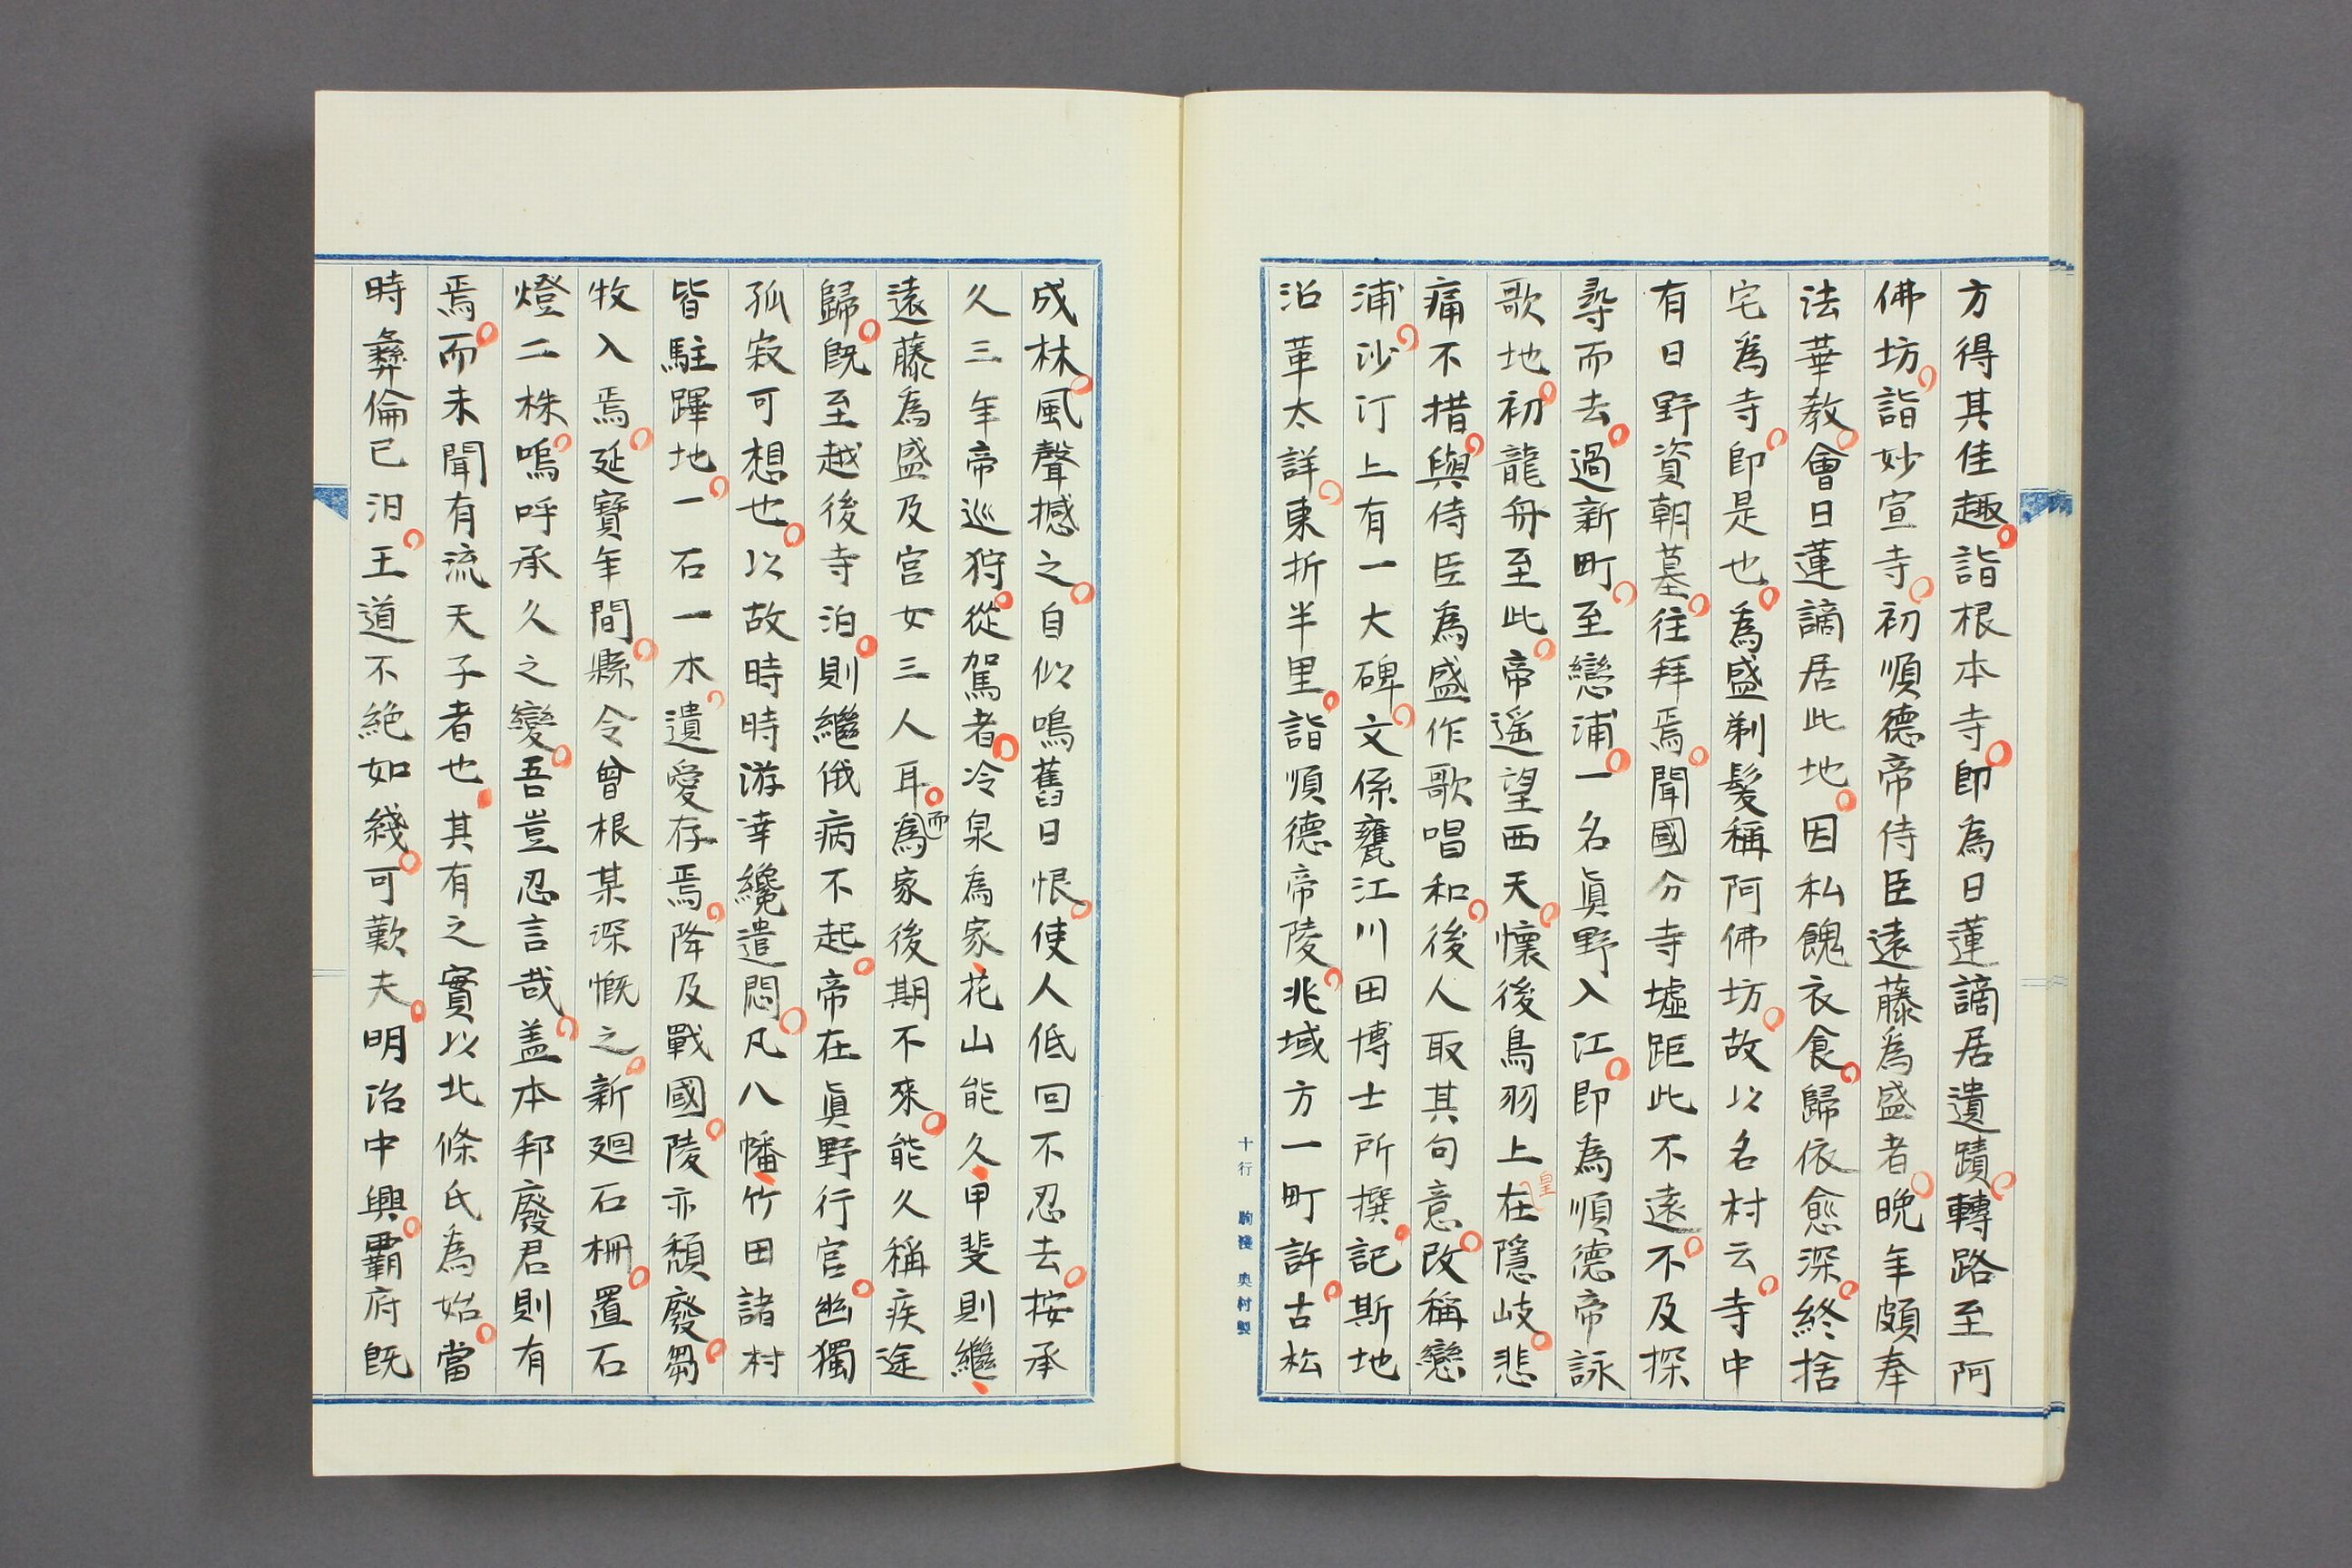 方得其佳趣。詣根本寺。即為日蓮謫居遺蹟。轉路至阿
佛坊。詣妙宣寺。初順德帝侍臣遠藤為盛者。晩年頗奉
法華教。會日蓮謫居此地。因私餽衣食。歸依愈深。終捨
宅為寺。即是也。為盛剃髮稱阿佛坊。故以名村云。寺中
有日野資朝墓。往拜焉。聞國分寺墟距此不遠。不及探
尋而去。過新町。至戀浦。一名眞野入江。即為順德帝詠
歌地。初龍舟至此。帝遥望西天。懷後鳥羽上皇在隱岐。悲
痛不措。與侍臣為盛作歌唱和。後人取其句意。改稱戀
浦。沙汀上有一大碑。文係甕江川田博士所撰。記斯地
沿革太詳。東折半里。詣順德帝陵。兆域方一町許。古松
十行 奥村製
成林。風聲撼之。自似鳴舊日恨。使人低回不忍去。按承
久三年帝巡狩。從駕者。冷泉為家、花山能久、甲斐則繼、
遠藤為盛及宮女三人耳。而為家後期不來。能久稱疾途
歸。既至越後寺泊。則繼俄病不起。帝在眞野行宮。幽獨
孤寂可想也。以故時時游幸纔遣悶。凡八幡、竹田諸村
皆駐蹕地。一石一木。遺愛存焉。降及戰國。陵亦頽廢。芻
牧入焉。延寶年間。縣令曾根某深慨之。新廻石柵。置石
燈二株。嗚呼承久之變。吾豈忍言哉。盖本邦廢君則有
焉。而未聞有流天子者也。其有之實以北條氏為始。當
時彝倫已汨。王道不絶如綫。可歎夫。明治中興。霸府既